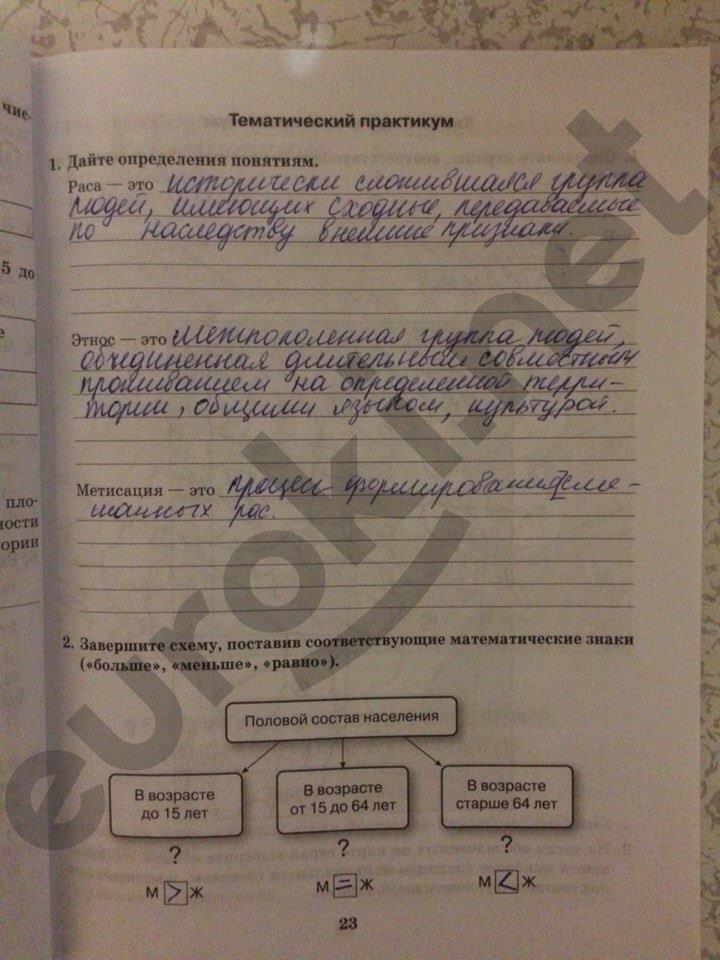 чис-
5 до
е
пло-
ности
ории
Тематический практикум
1. Дайте определения понятиям.
Раса — это исторически сложившаяся группа
людей, имеющих сходные, передаваемые
по наследству внешние признаки.
Этнос — это Межпоколенная группа людей,
объединенная длительным совместным
проживанием на определенной терри-
тории, общими языком, культурой.
Метисация — это процесс формирования сме-
шанных рас.
2. Завершите схему, поставив соответствующие математические знаки
(«больше», «меньше», «равно»).
Половой состав населения
В возрасте
до 15 лет
В возрасте
от 15 до 64 лет
В возрасте
старше 64 лет
? ? ?
м > ж м = ж м < ж
23
euroki.net